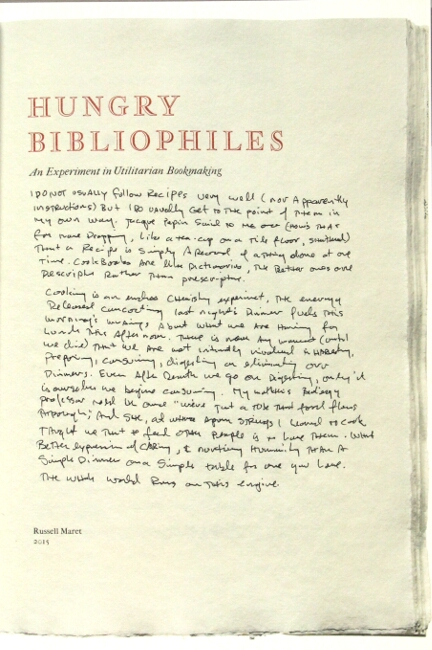 HUNGRY
BIBLIOPHILES
An Experiment in Utilitarian Bookmaking
I DO NOT USUALLY Follow Recipes very well (nor Apparently
instructions) But I DO Usually Get to the point of them in
My own way. Jacque Pepin Said to me over
for more Dropping, Like a tea-cup on a Tile floor,
That a Recipe is Simply A Record of a thing done at one
Time. CookBooks Are like Dictionaries, The Better ones are
Descriptive Rather Than prescriptive.
Cooking is an endless Chemistry experiment, The energy
Released Concocting last night's Dinner fuels This
morning's musings About what we Are Having for
Lunch This Afternoon. There is never Any moment (until
we die) That we Are not intimately involved in
Preparing, consuming, digesting or eliminating our
Dinners. Even After Death we go on Digesting, only it
is ourselves we begin consuming. My mother's
professor said we are "just a tube that food flows
through"; And She, at whose Apron Strings I learned to Cook
Taught me That to feed other People is to Love Them. What
Better expression of CAring, & Humanity Than A
Simple Dinner on a Simple table for one you Love.
The whole world Runs on This engine.
Russell Maret
2015